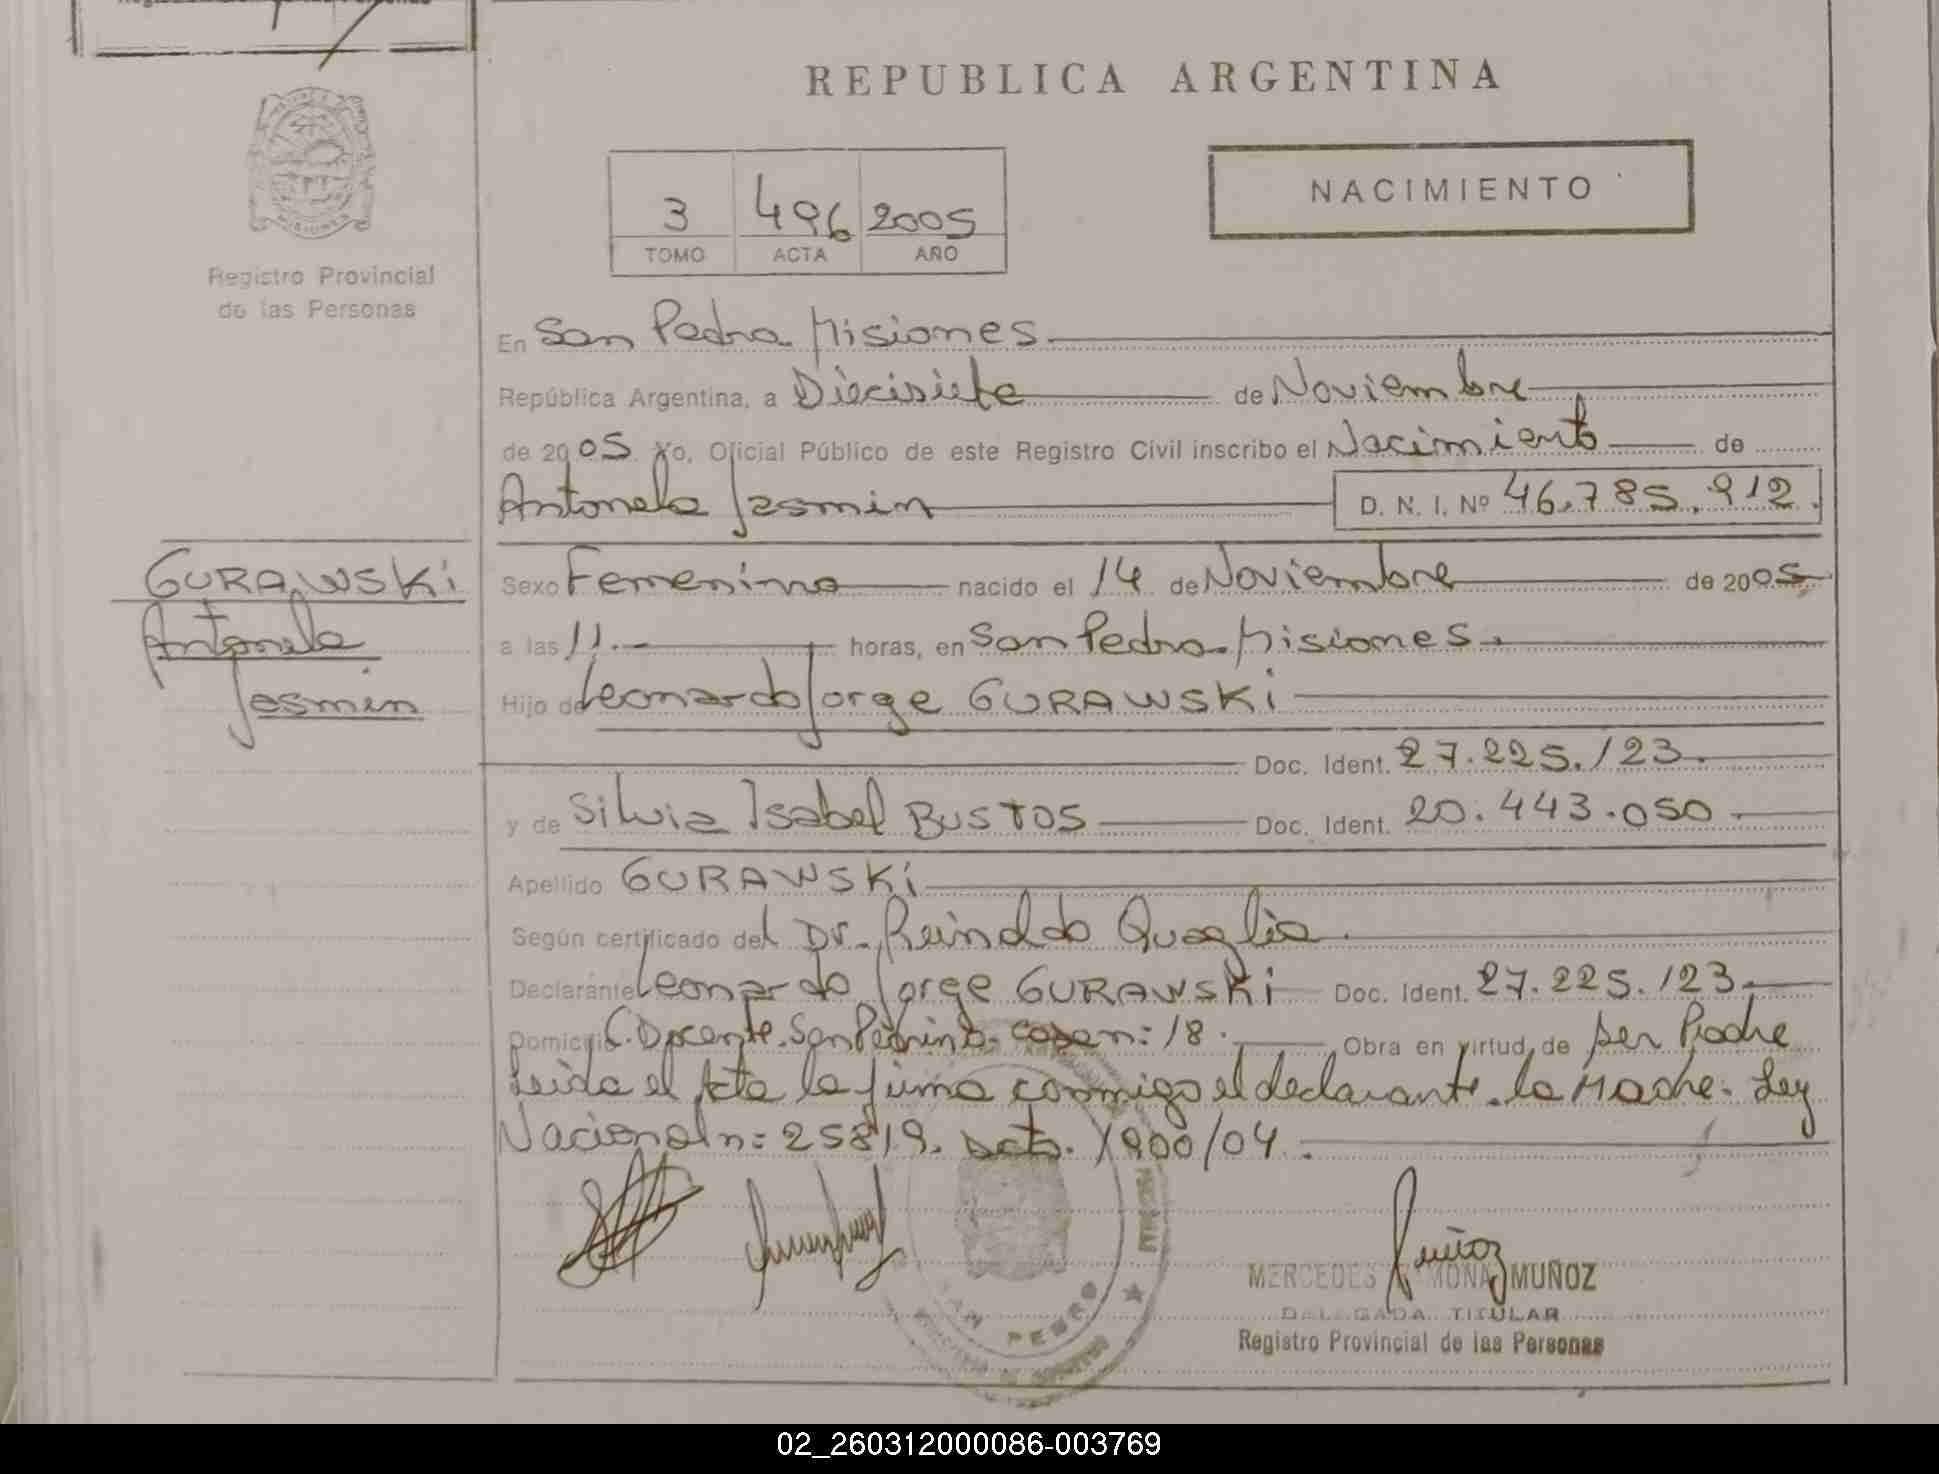 REPUBLICA ARGENTINA
NACIMIENTO
3 496 2005
TOMO ACTA AÑO
Registro Provincial
de las Personas
En San Pedro Misiones
República Argentina, a Diecisiete de Noviembre
de 2005 Yo, Oficial Público de este Registro Civil inscribo el Nacimiento de
Antonela Jasmin D. N. I. Nº 46.785.912.
GURAWSKi
Antonela
Jasmin
Sexo Femenino nacido el 14 de Noviembre de 2005
a las 11.- horas, en San Pedro Misiones.
Hijo de Leonardo Jorge GURAWSKi
Doc. Ident. 27.225.123.
y de Silvia Isabel BUSTOS Doc. Ident. 20.443.050
Apellido GURAWSKi
Según certificado del Dr. Reinaldo Quaglia.
Declarante Leonardo Jorge GURAWSKi Doc. Ident. 27.225.123.
Domicilio C. Docente. San Pedrino. casa n: 18. Obra en virtud de ser Padre
Leida el Acta la firma conmigo el declarante. la Madre. Ley
Nacional n: 25819. Dcto. 1900/04.
Muñoz
MERCEDES MUÑOZ
DELEGADA TITULAR
Registro Provincial de las Personas
SAN PEDRO
02_260312000086-003769